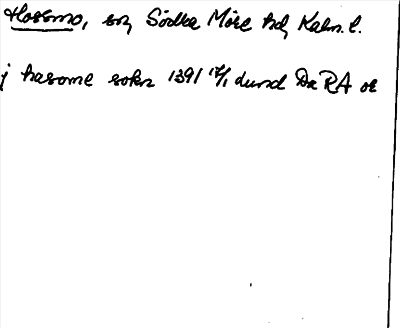 Hossmo, sn, Södra Möre hd, Kalm. l.
j hasome sokn 1391 17/1 Lund Da RA or